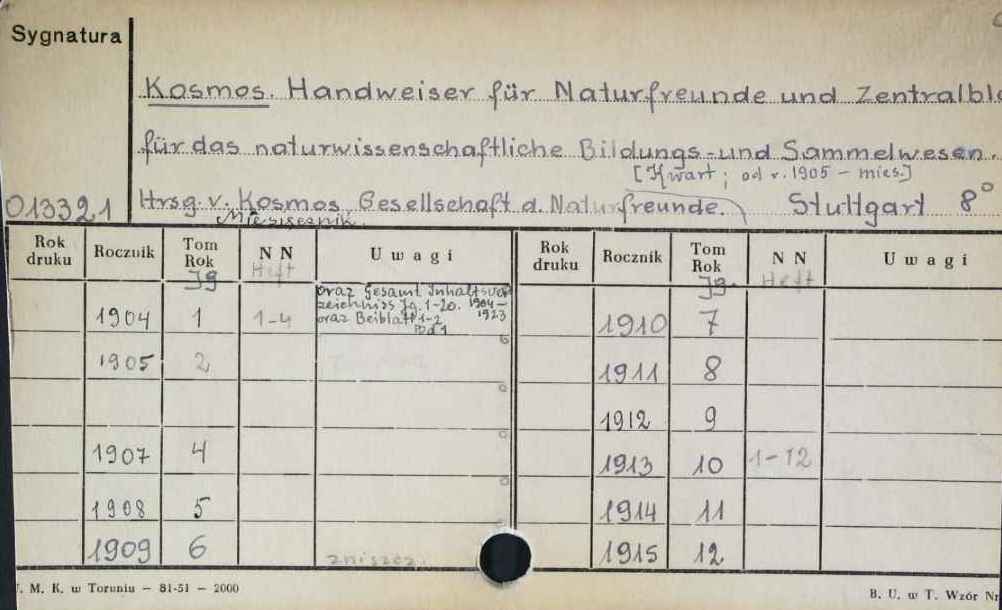 Sygnatura
Kosmos. Handweiser für Naturfreunde und Zentralbl
für das naturwissenschaftliche Bildungs- und Sammelwesen.
[Kwart; od r. 1905 - mies.]
013321 Hrsg. v. Kosmos Gesellschaft d. Naturfreunde. Stuttgart 8°
Miesięcznik.
Rok druku Rocznik Tom Rok N N Uwagi Rok druku Rocznik Tom Rok N N Uwagi
Jg Heft Jg. Heft
oraz Gesamt Inhaltsver
zeichniss Jg. 1-20. 1904-
1923
1904 1 1-4 oraz Beiblatt 1-2 1910 7
Bd 1
1905 2 1911 8
1912 9
1907 4 1913 10 1-12
1908 5 1914 11
1909 6 zniszcz. 1915 12
. M. K. w Toruniu — 81-51 — 2000
B. U. w T. Wzór Nr